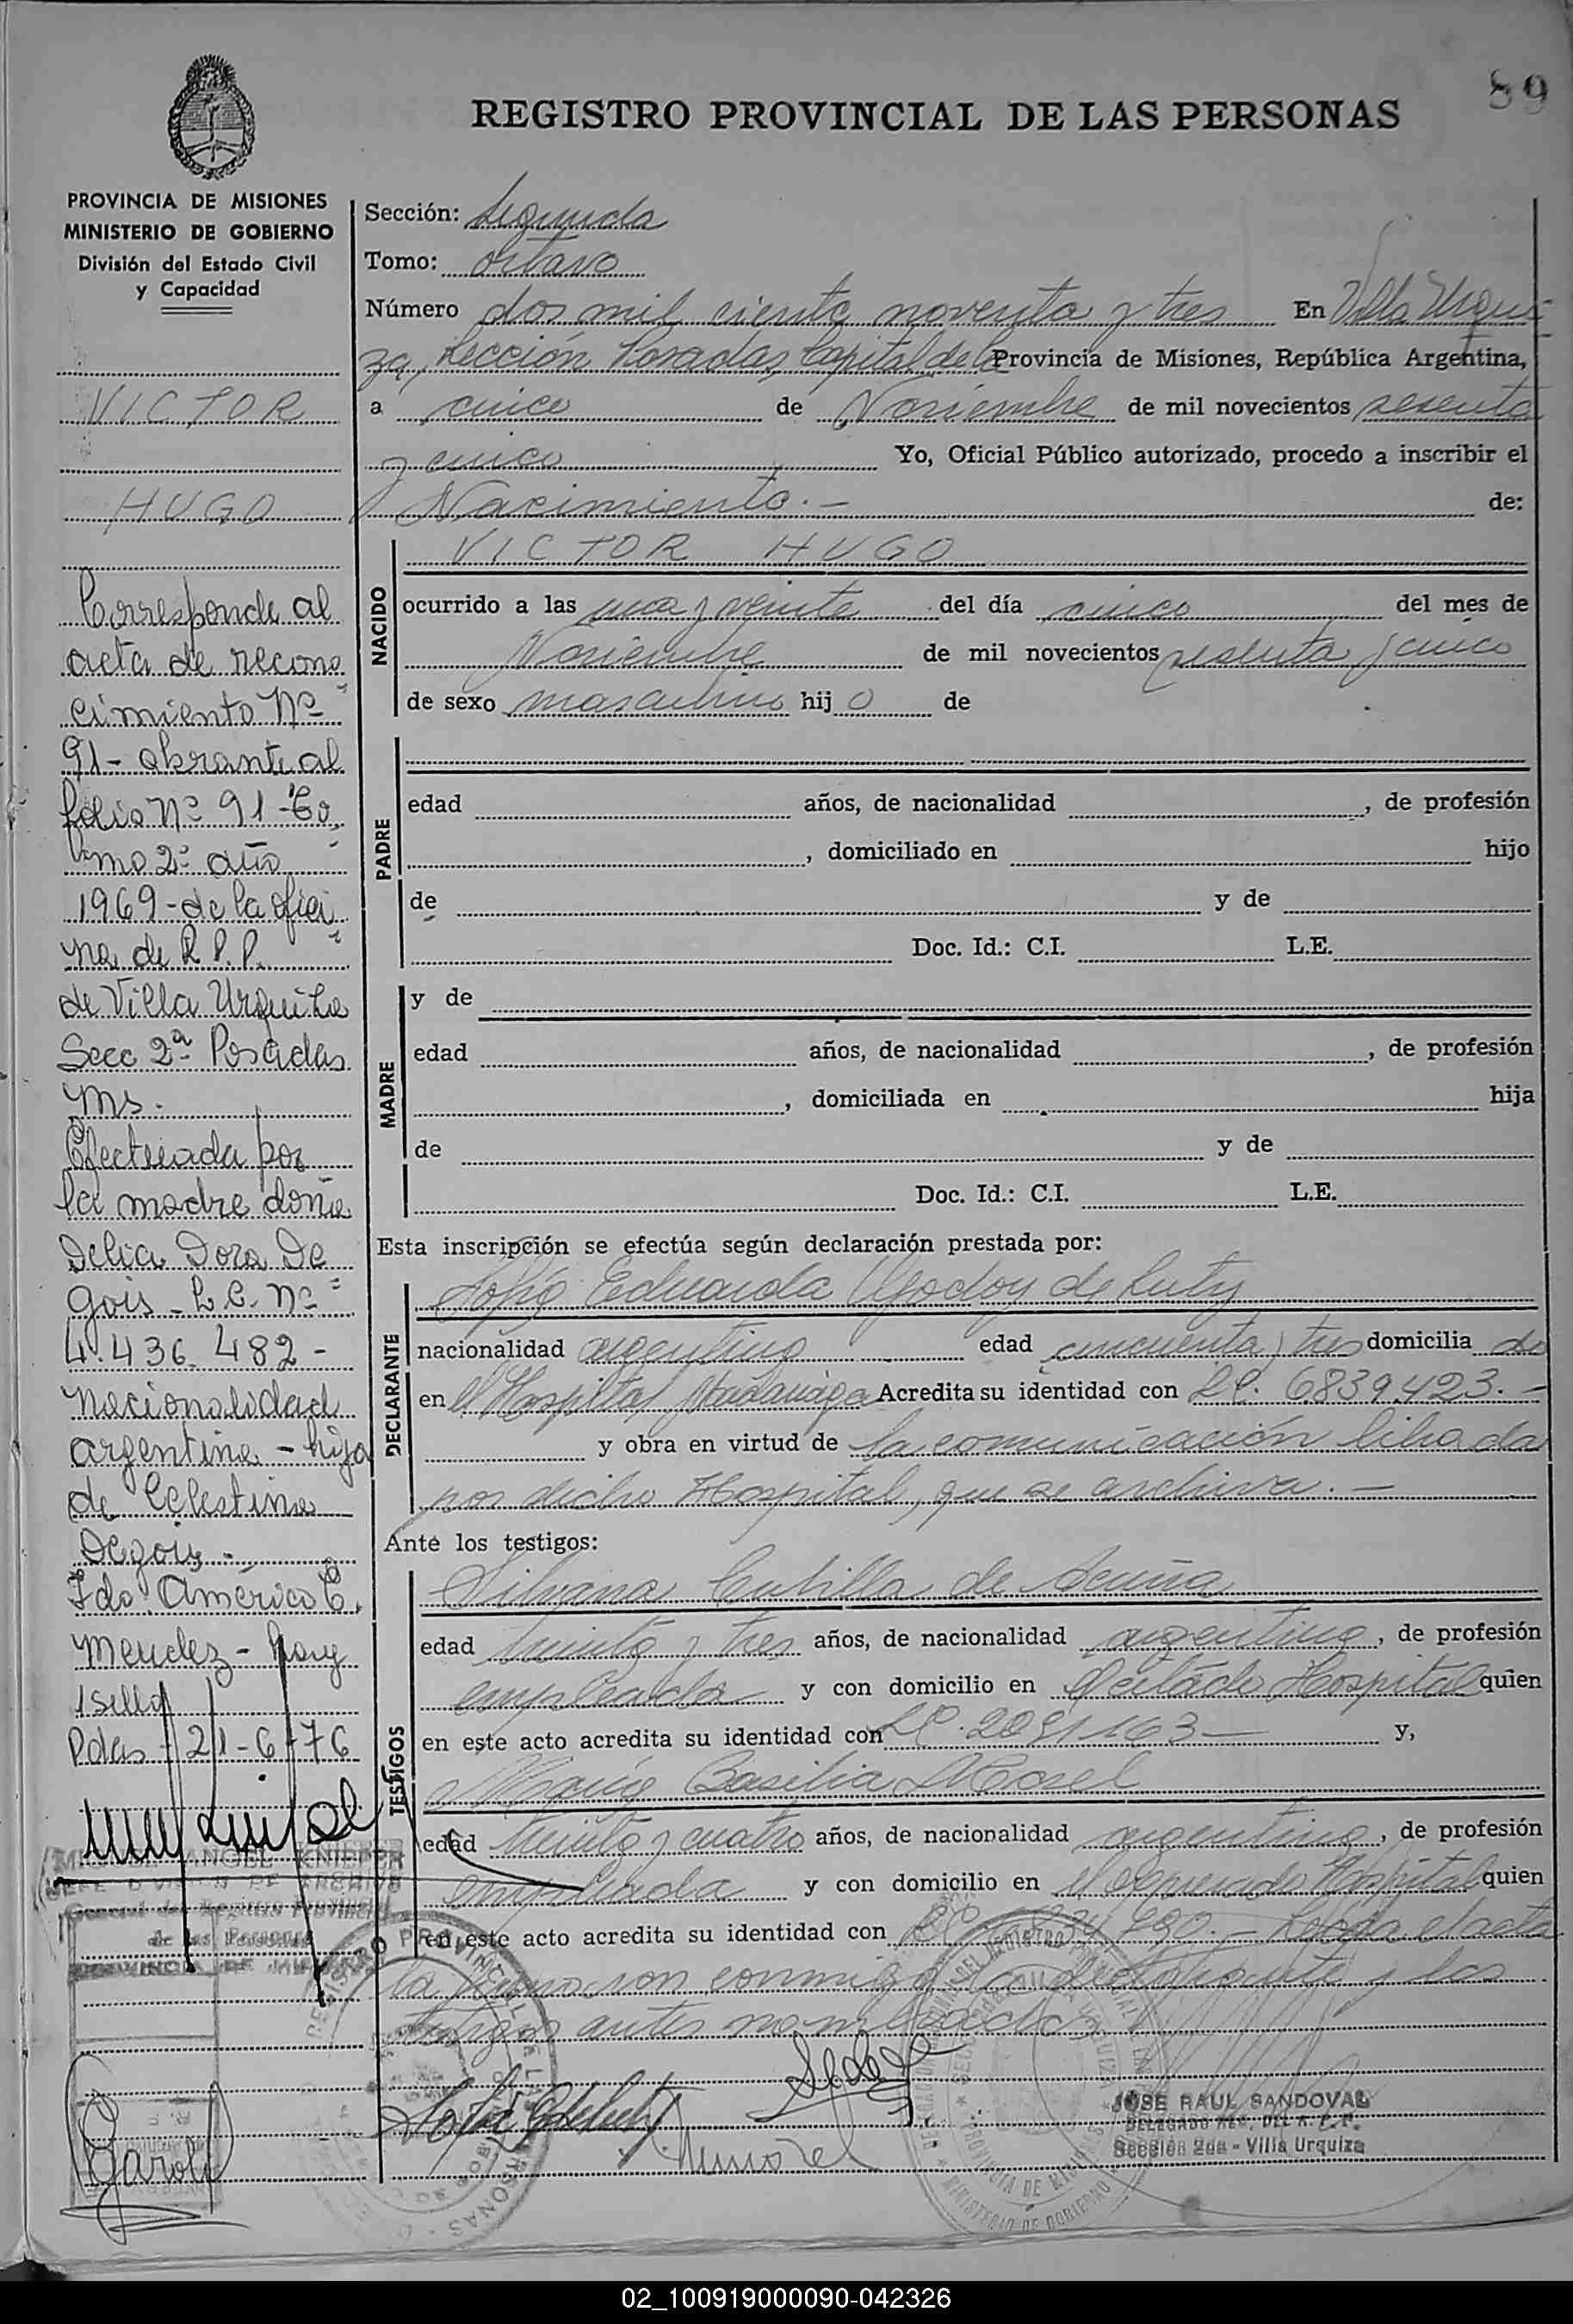 89
REGISTRO PROVINCIAL DE LAS PERSONAS
PROVINCIA DE MISIONES
MINISTERIO DE GOBIERNO
División del Estado Civil
y Capacidad
VICTOR
HUGO
Corresponde al
acta de recono
cimiento Nº
91 - obrante al
folio Nº 91 - To
mo 2º año
1969 - de la ofici
na de R.P.P.
de Villa Urquiza
Secc 2ª Posadas
Ms.
Efectuada por
la madre doña
Delia Dora De
gois - L.C. Nº
4.436.482 -
nacionalidad
argentina - hija
de Celestina
Degois -
Fdo. Américo C.
Mendez - hay
1 sello
Pdas - 21-6-76
MIGUEL ANGEL KNIEPER
JEFE DIVISION DE ARCHIVO
General del Registro Provincial
de las Personas
PROVINCIA DE MISIONES
Sección: Segunda
Tomo: octavo
Número dos mil ciento noventa y tres En Villa Urqui
za, Sección Posadas, Capital de la Provincia de Misiones, República Argentina,
a cinco de Noviembre de mil novecientos sesenta
y cinco Yo, Oficial Público autorizado, procedo a inscribir el
Nacimiento. - de:
NACIDO
VICTOR HUGO
ocurrido a las una y veinte del día cinco del mes de
Noviembre de mil novecientos sesenta y cinco
de sexo masculino hijo de
PADRE
edad años, de nacionalidad , de profesión
, domiciliado en hijo
de y de
Doc. Id.: C.I. L.E.
MADRE
y de
edad años, de nacionalidad , de profesión
, domiciliada en hija
de y de
Doc. Id.: C.I. L.E.
Esta inscripción se efectúa según declaración prestada por:
DECLARANTE
Sofía Eduarda Godoy de Luty
nacionalidad argentina edad cincuenta y tres domicilia da
en el Hospital Madariaga Acredita su identidad con L.C. 6839.423. -
y obra en virtud de la comunicación librada
por dicho Hospital, que se archiva. -
Ante los testigos:
TESTIGOS
Silvana Cubilla de Acuña
edad treinta y tres años, de nacionalidad argentina, de profesión
empleada y con domicilio en el citado Hospital quien
en este acto acredita su identidad con L.C. 2091163 - y,
María Basilia Morel
edad treinta y cuatro años, de nacionalidad argentina, de profesión
empleada y con domicilio en el expresado Hospital quien
en este acto acredita su identidad con Leída el acta
la firmaron conmigo la declarante y los
testigos antes nombrados
JOSE RAUL SANDOVAL
Sección 2da - Villa Urquiza
02_100919000090-042326